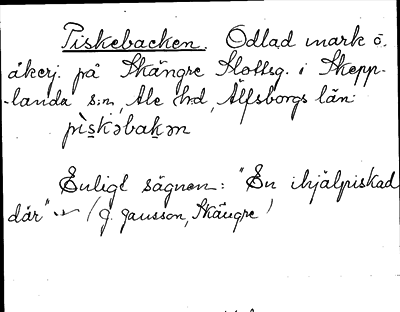 Piskebacken. Odlad mark o.
åkerj. på Skängre Slottsg. i Skepp-
-landa s:n, Ale hd, Älfsborgs län
pìskəbakən
Enligt sägnen: "En ihjälpiskad
där" (J. Jansson, Skängre)